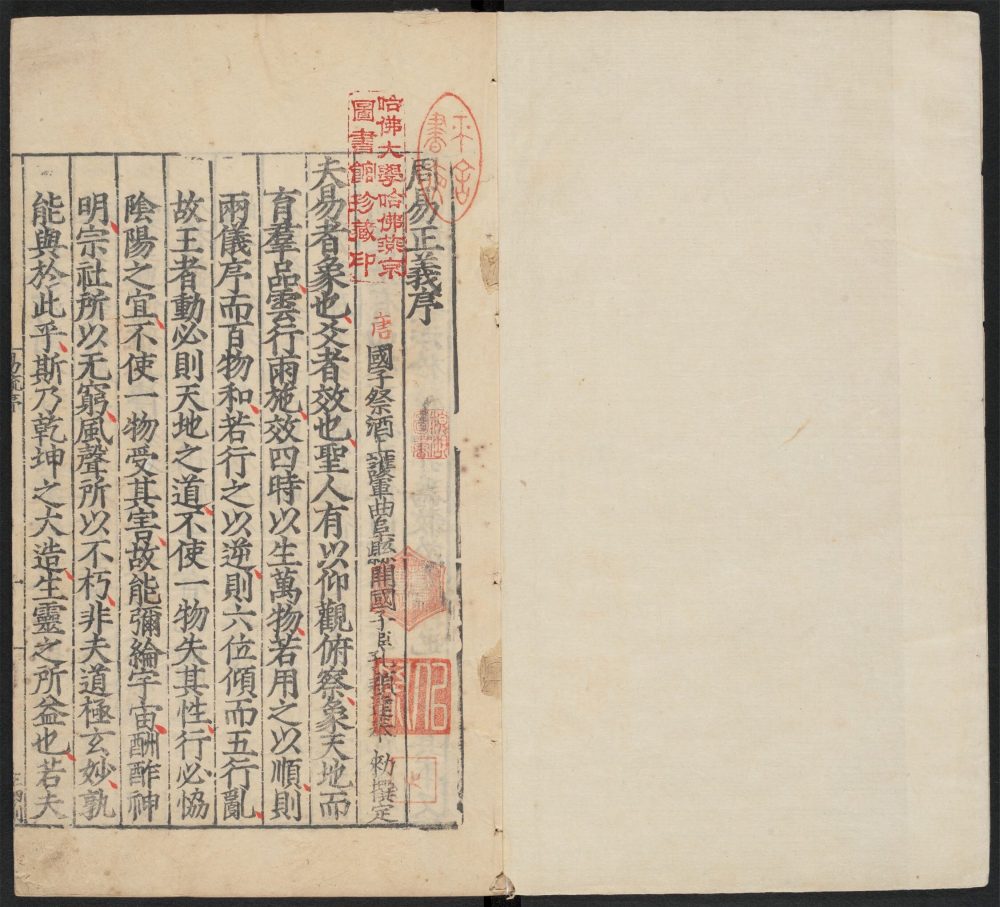 周易正義序
唐國子祭酒上護軍曲阜縣開國子臣孔穎達奉 勑撰定
夫易者象也爻者效也聖人有以仰觀俯察象天地而
育羣品雲行雨施效四時以生萬物若用之以順則
兩儀序而百物和若行之以逆則六位傾而五行亂
故王者動必則天地之道不使一物失其性行必恊
陰陽之宜不使一物受其害故能彌綸宇宙酬酢神
明宗社所以无窮風聲所以不朽非夫道極玄妙孰
能與於此乎斯乃乾坤之大造生靈之所益也若夫
哈佛大學哈佛燕京
圖書館珍藏印